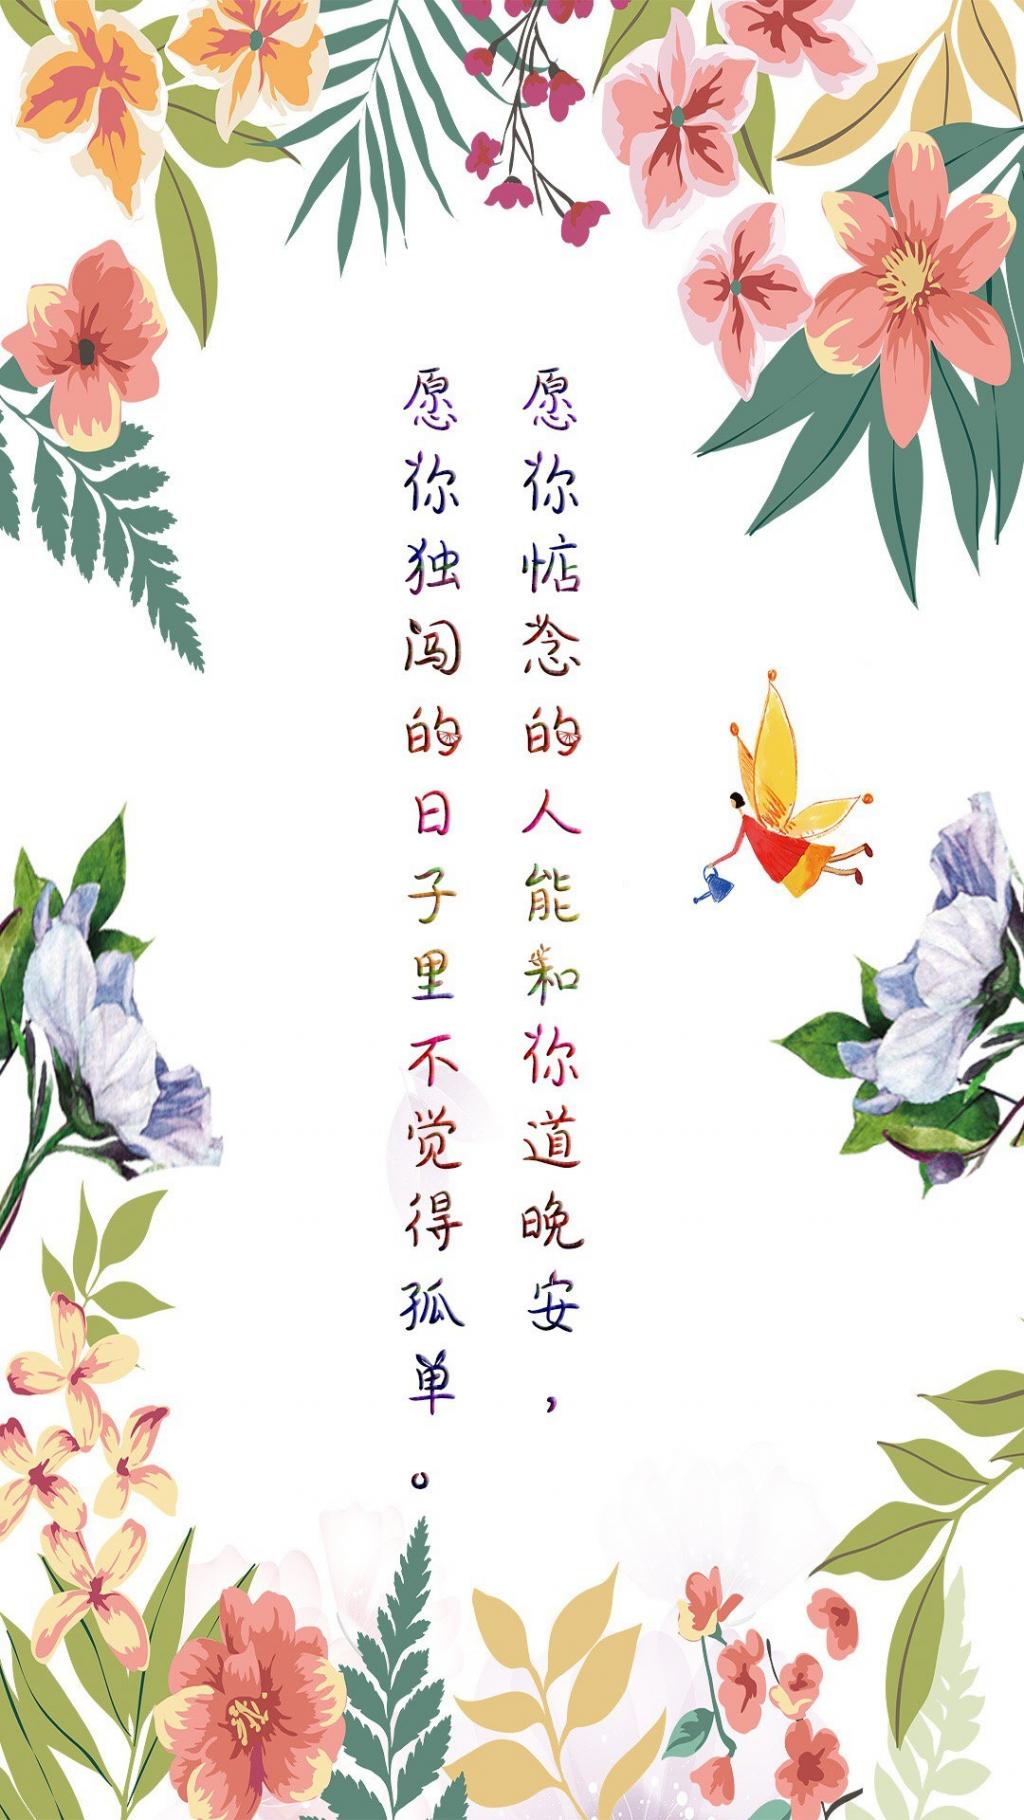 愿你惦念的人能和你道晚安，
愿你独闯的日子里不觉得孤单。